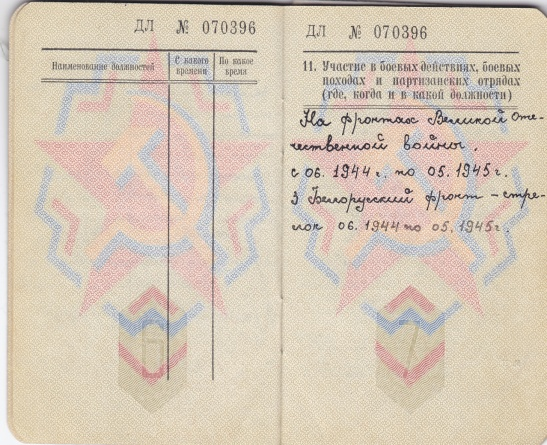 ДЛ № 070396
Наименование должностей
С какого времени
По какое время
6
ДЛ № 070396
11. Участие в боевых действиях, боевых
походах и партизанских отрядах
(где, когда и в какой должности)
На фронтах Великой Оте-
чественной войны.
с 06. 1944 г. по 05. 1945 г.
3 Белорусский фронт - стре-
лок 06. 1944 по 05. 1945 г.
7